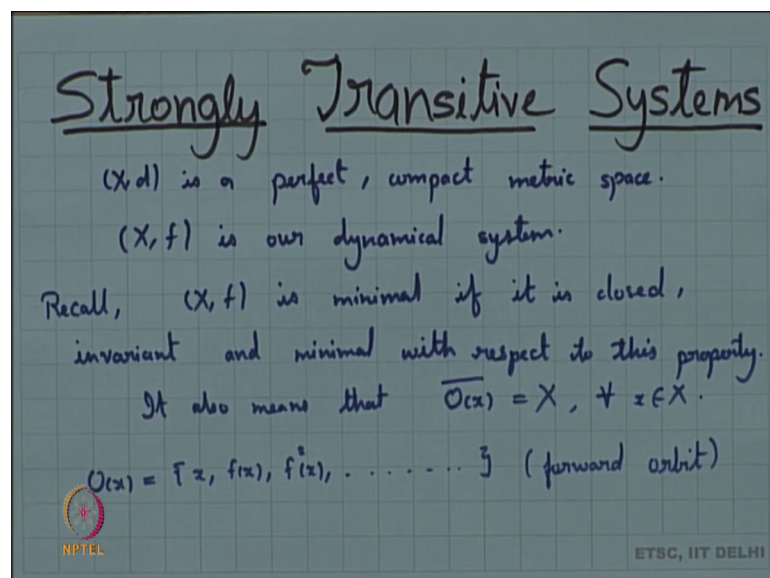 Strongly Transitive Systems
(X,d) is a perfect, compact metric space.
(X, f) is our dynamical system.
Recall, (X, f) is minimal if it is closed,
invariant and minimal with respect to this property.
It also means that \overline{O(x)} = X, ∀ x ∈ X.
O(x) = { x, f(x), f²(x), . . . . . . . . } (forward orbit)
NPTEL
ETSC, IIT DELHI